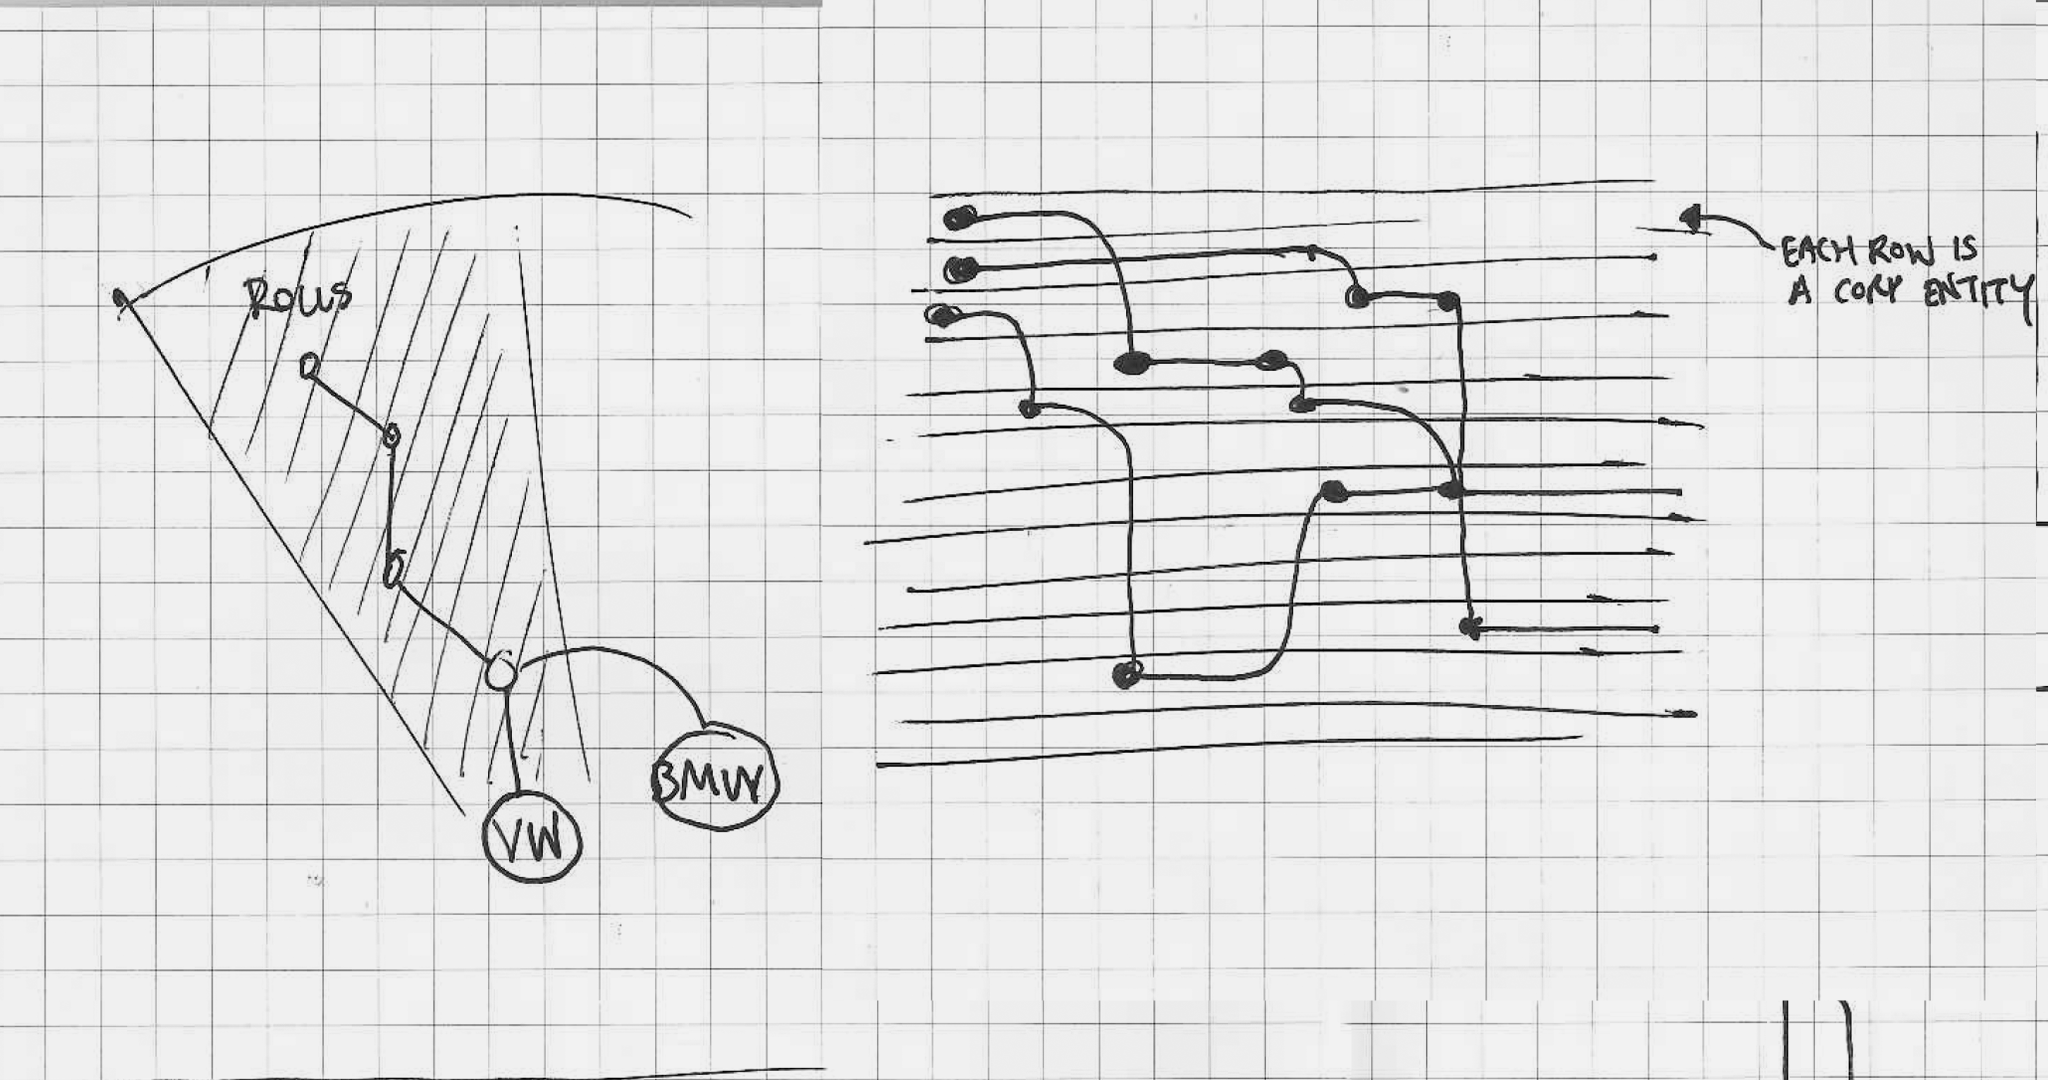 ROLLS
VW
BMW
EACH ROW IS
A CORP ENTITY